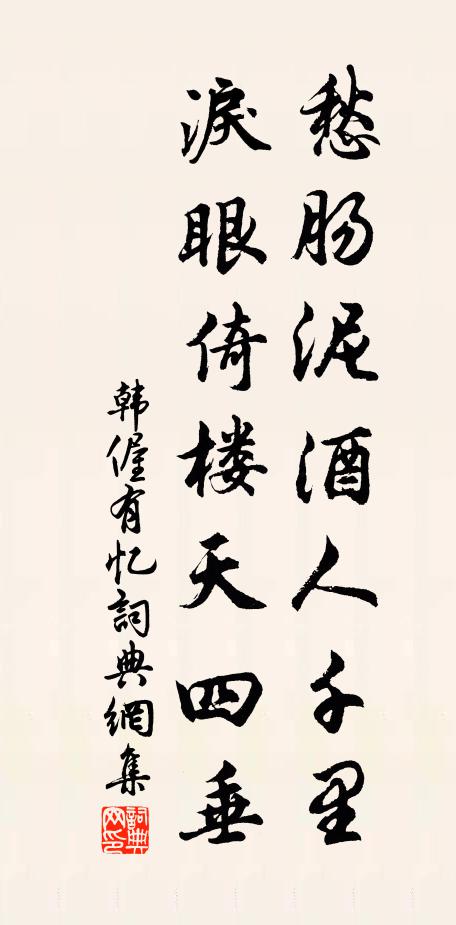 愁肠泥酒人千里
淚眼倚楼天四垂
韩偓有忆詞典網集
詞典网印